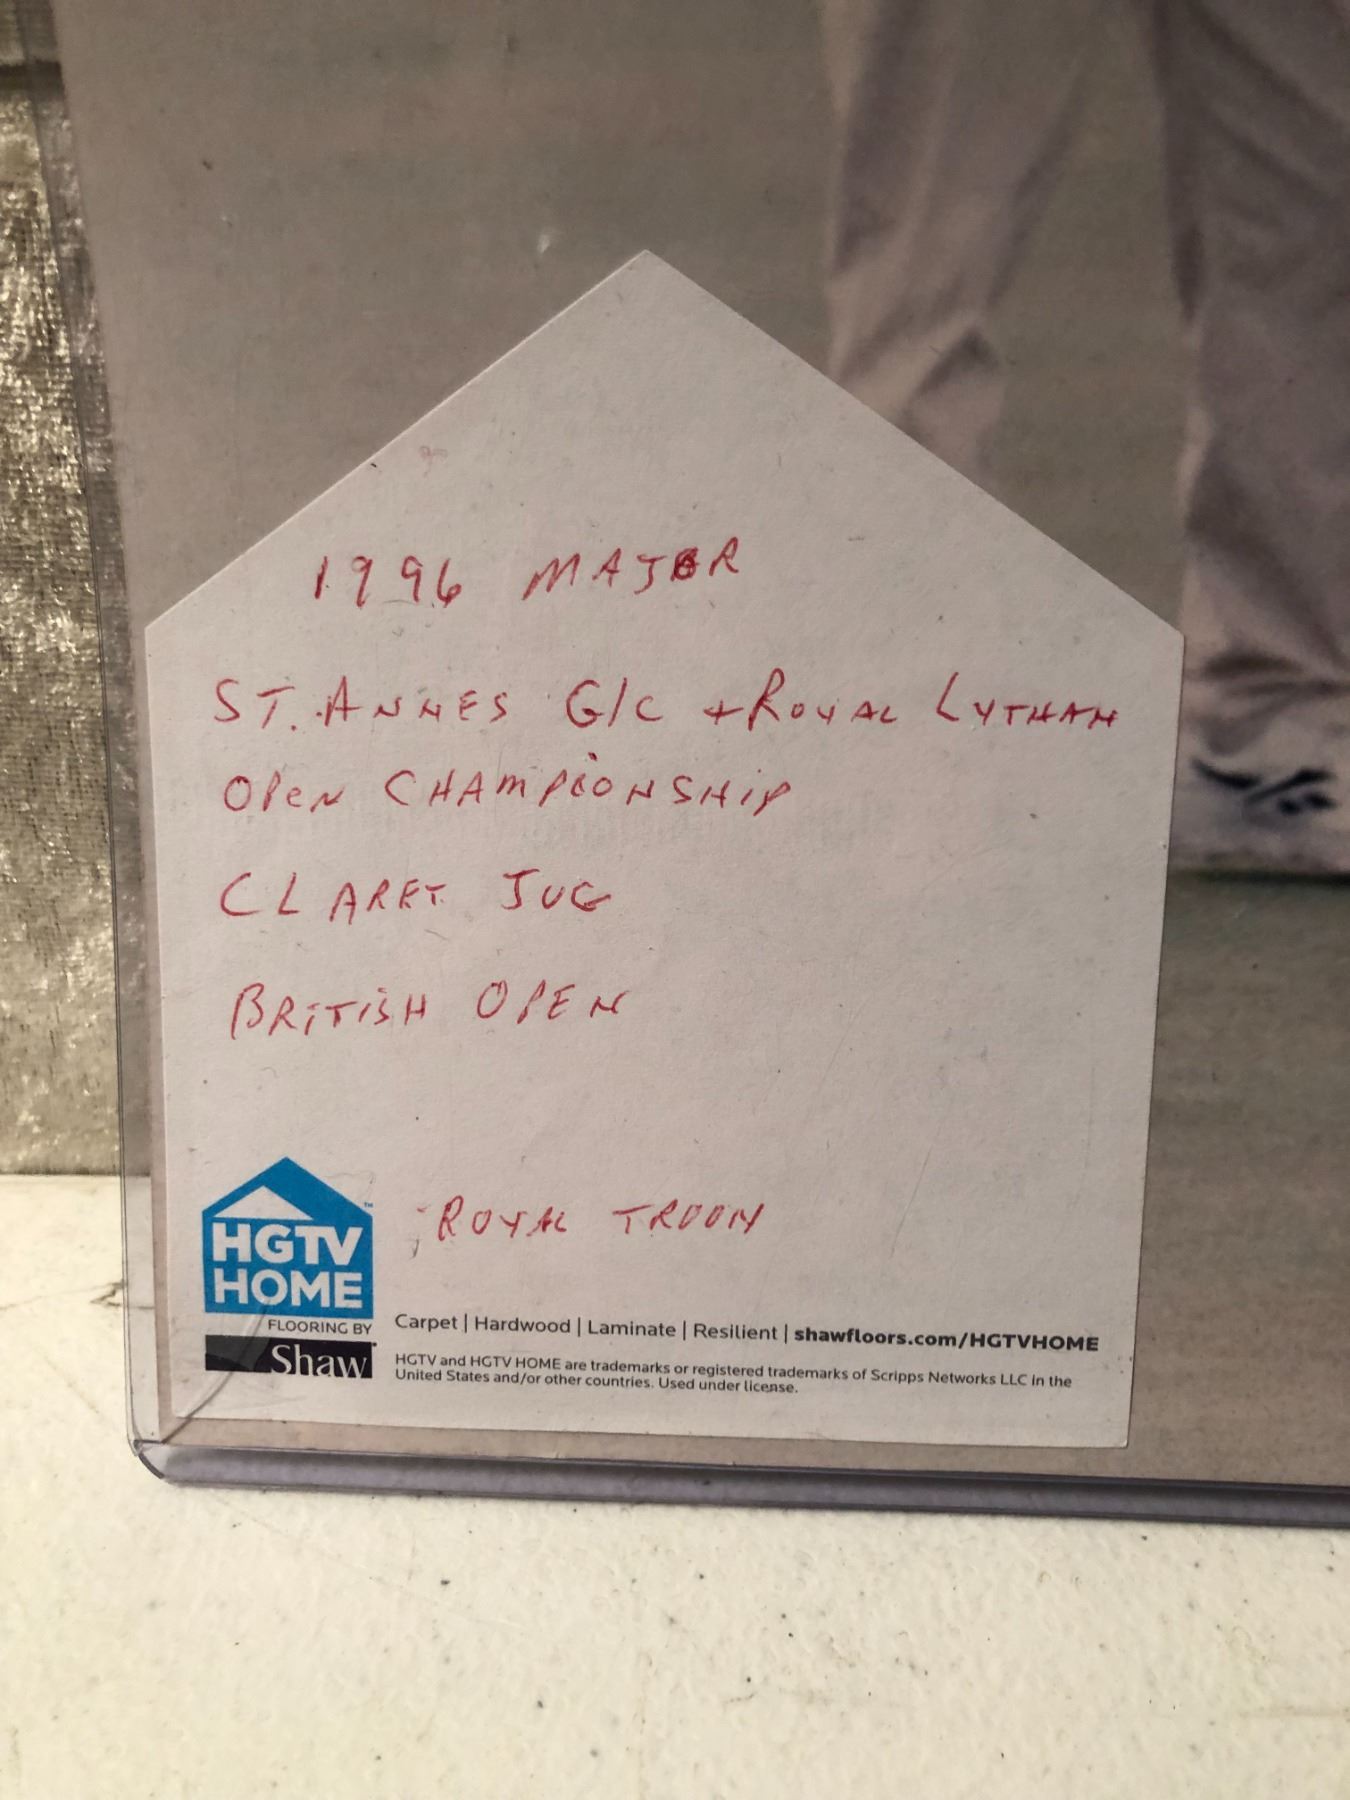 1996 MAJOR
ST. ANNES G/C + ROYAL LYTHAM
OPEN CHAMPIONSHIP
CLARET JUG
BRITISH OPEN
ROYAL TROON
HGTV
HOME
™
FLOORING BY
Shaw
Carpet | Hardwood | Laminate | Resilient | shawfloors.com/HGTVHOME
HGTV and HGTV HOME are trademarks or registered trademarks of Scripps Networks LLC in the
United States and/or other countries. Used under license.